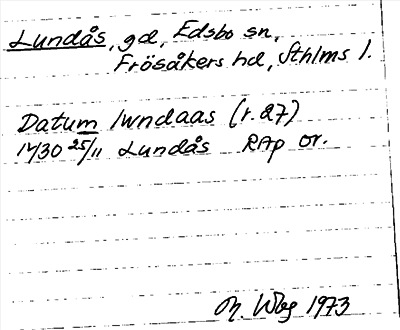 Lundås, gd, Edsbo sn,
Frösåkers hd, Sthlms l.
Datum lwndaas (r. 27)
14/30 25/11 Lundås RAp or.
M. Wbg 1973